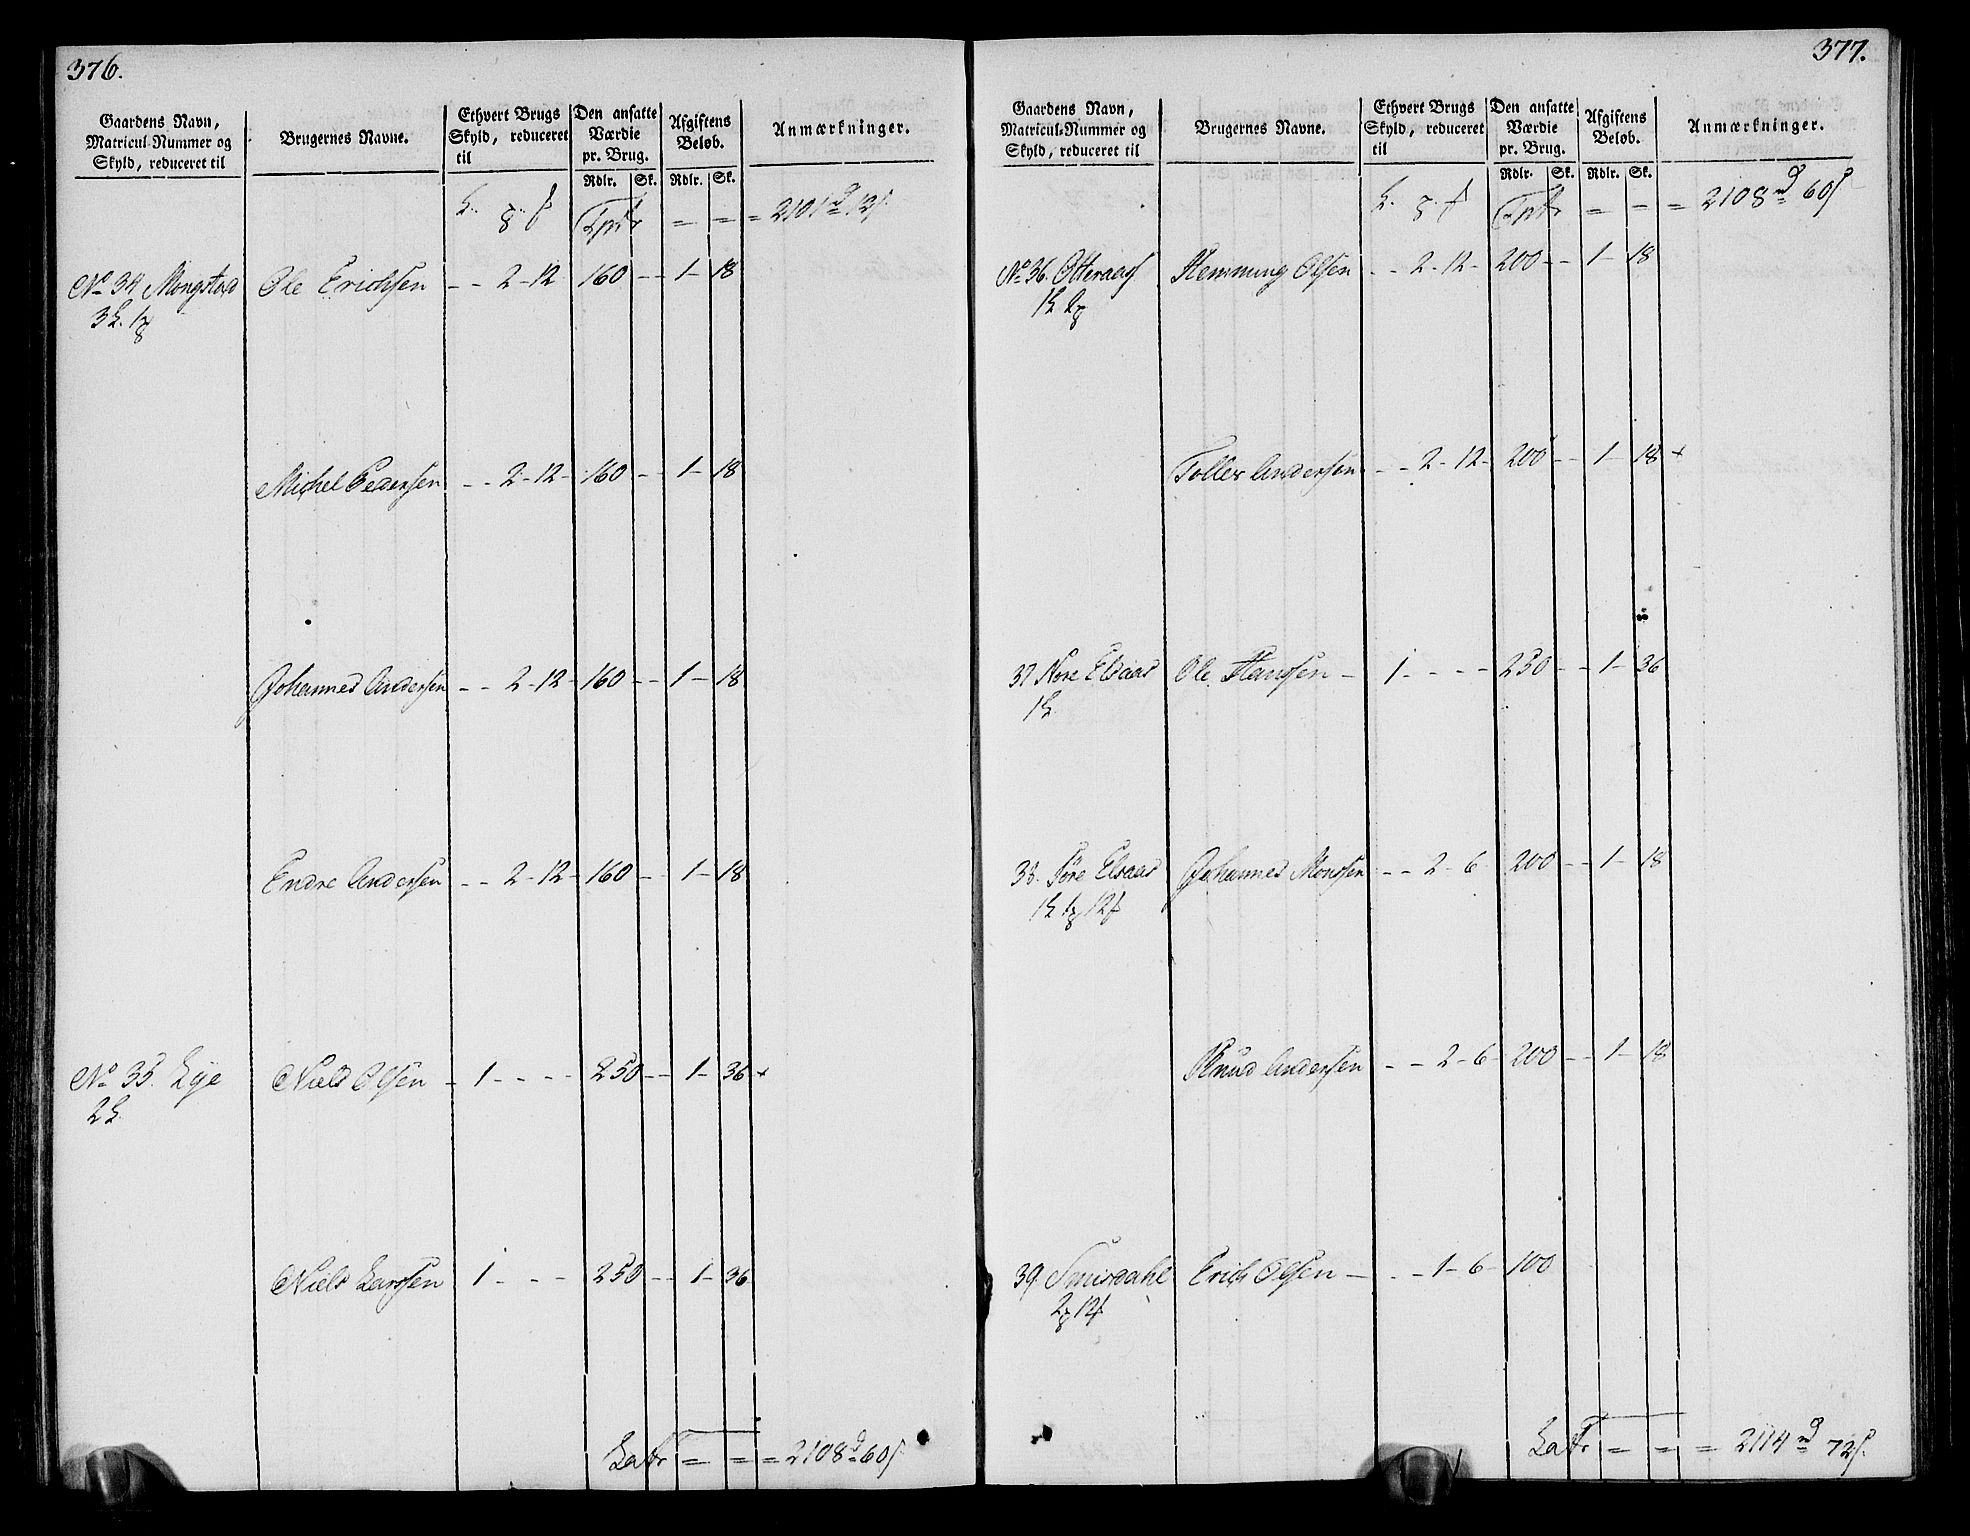 376.
Gaardens Navn, Matricul-Nummer og Skyld, reduceret til
Brugernes Navne.
Ethvert Brugs Skyld, reduceret til
Den ansatte Værdie pr. Brug.
Afgiftens Beløb.
Anmærkninger.
Rdlr. Sk. Rdlr. Sk.
Tptr = = = 2101 12
No 34 Mongstad Ole Erichsen - - 2 - 12 160 - - 1 - 18
Michel Pedersen - - 2 - 12 - 160 - - 1 - 18
Johannes Andersen - - 2 - 12 - 160 - - 1 - 18
Endre Andersen - - 2 - 12 - 160 - - 1 - 18
No 35. Lye Niels Olsen - 1 - - - - 250 - - 1 - 36 +
Niels Larssen 1 - - - 250 - - 1 - 36
Latr = = = 2108 60
377.
Gaardens Navn, Matricul-Nummer og Skyld, reduceret til
Brugernes Navne.
Ethvert Brugs Skyld, reduceret til
Den ansatte Værdie pr. Brug.
Afgiftens Beløb.
Anmærkninger.
Rdlr. Sk. Rdlr. Sk.
Tptr = = = 2108 60
No 36. Otteraas Hemming Olsen - - 2 - 12 - 200 - - 1 - 18
Toller Andersen - - 2 - 12 - 200 - - 1 - 18 +
37 Nore Elsaas Ole Hansen - 1 - - - - 250 - - 1 - 36
38. Søre Elsaas Johannes Monssen - - 2 - 6 200 - - 1 - 18
Knud Andersen - - 2 - 6 - 200 - - 1 - 18
39. Smisdahl Erich Olsen - - - 1 - 6 - 100
Latr = = = 2114 72